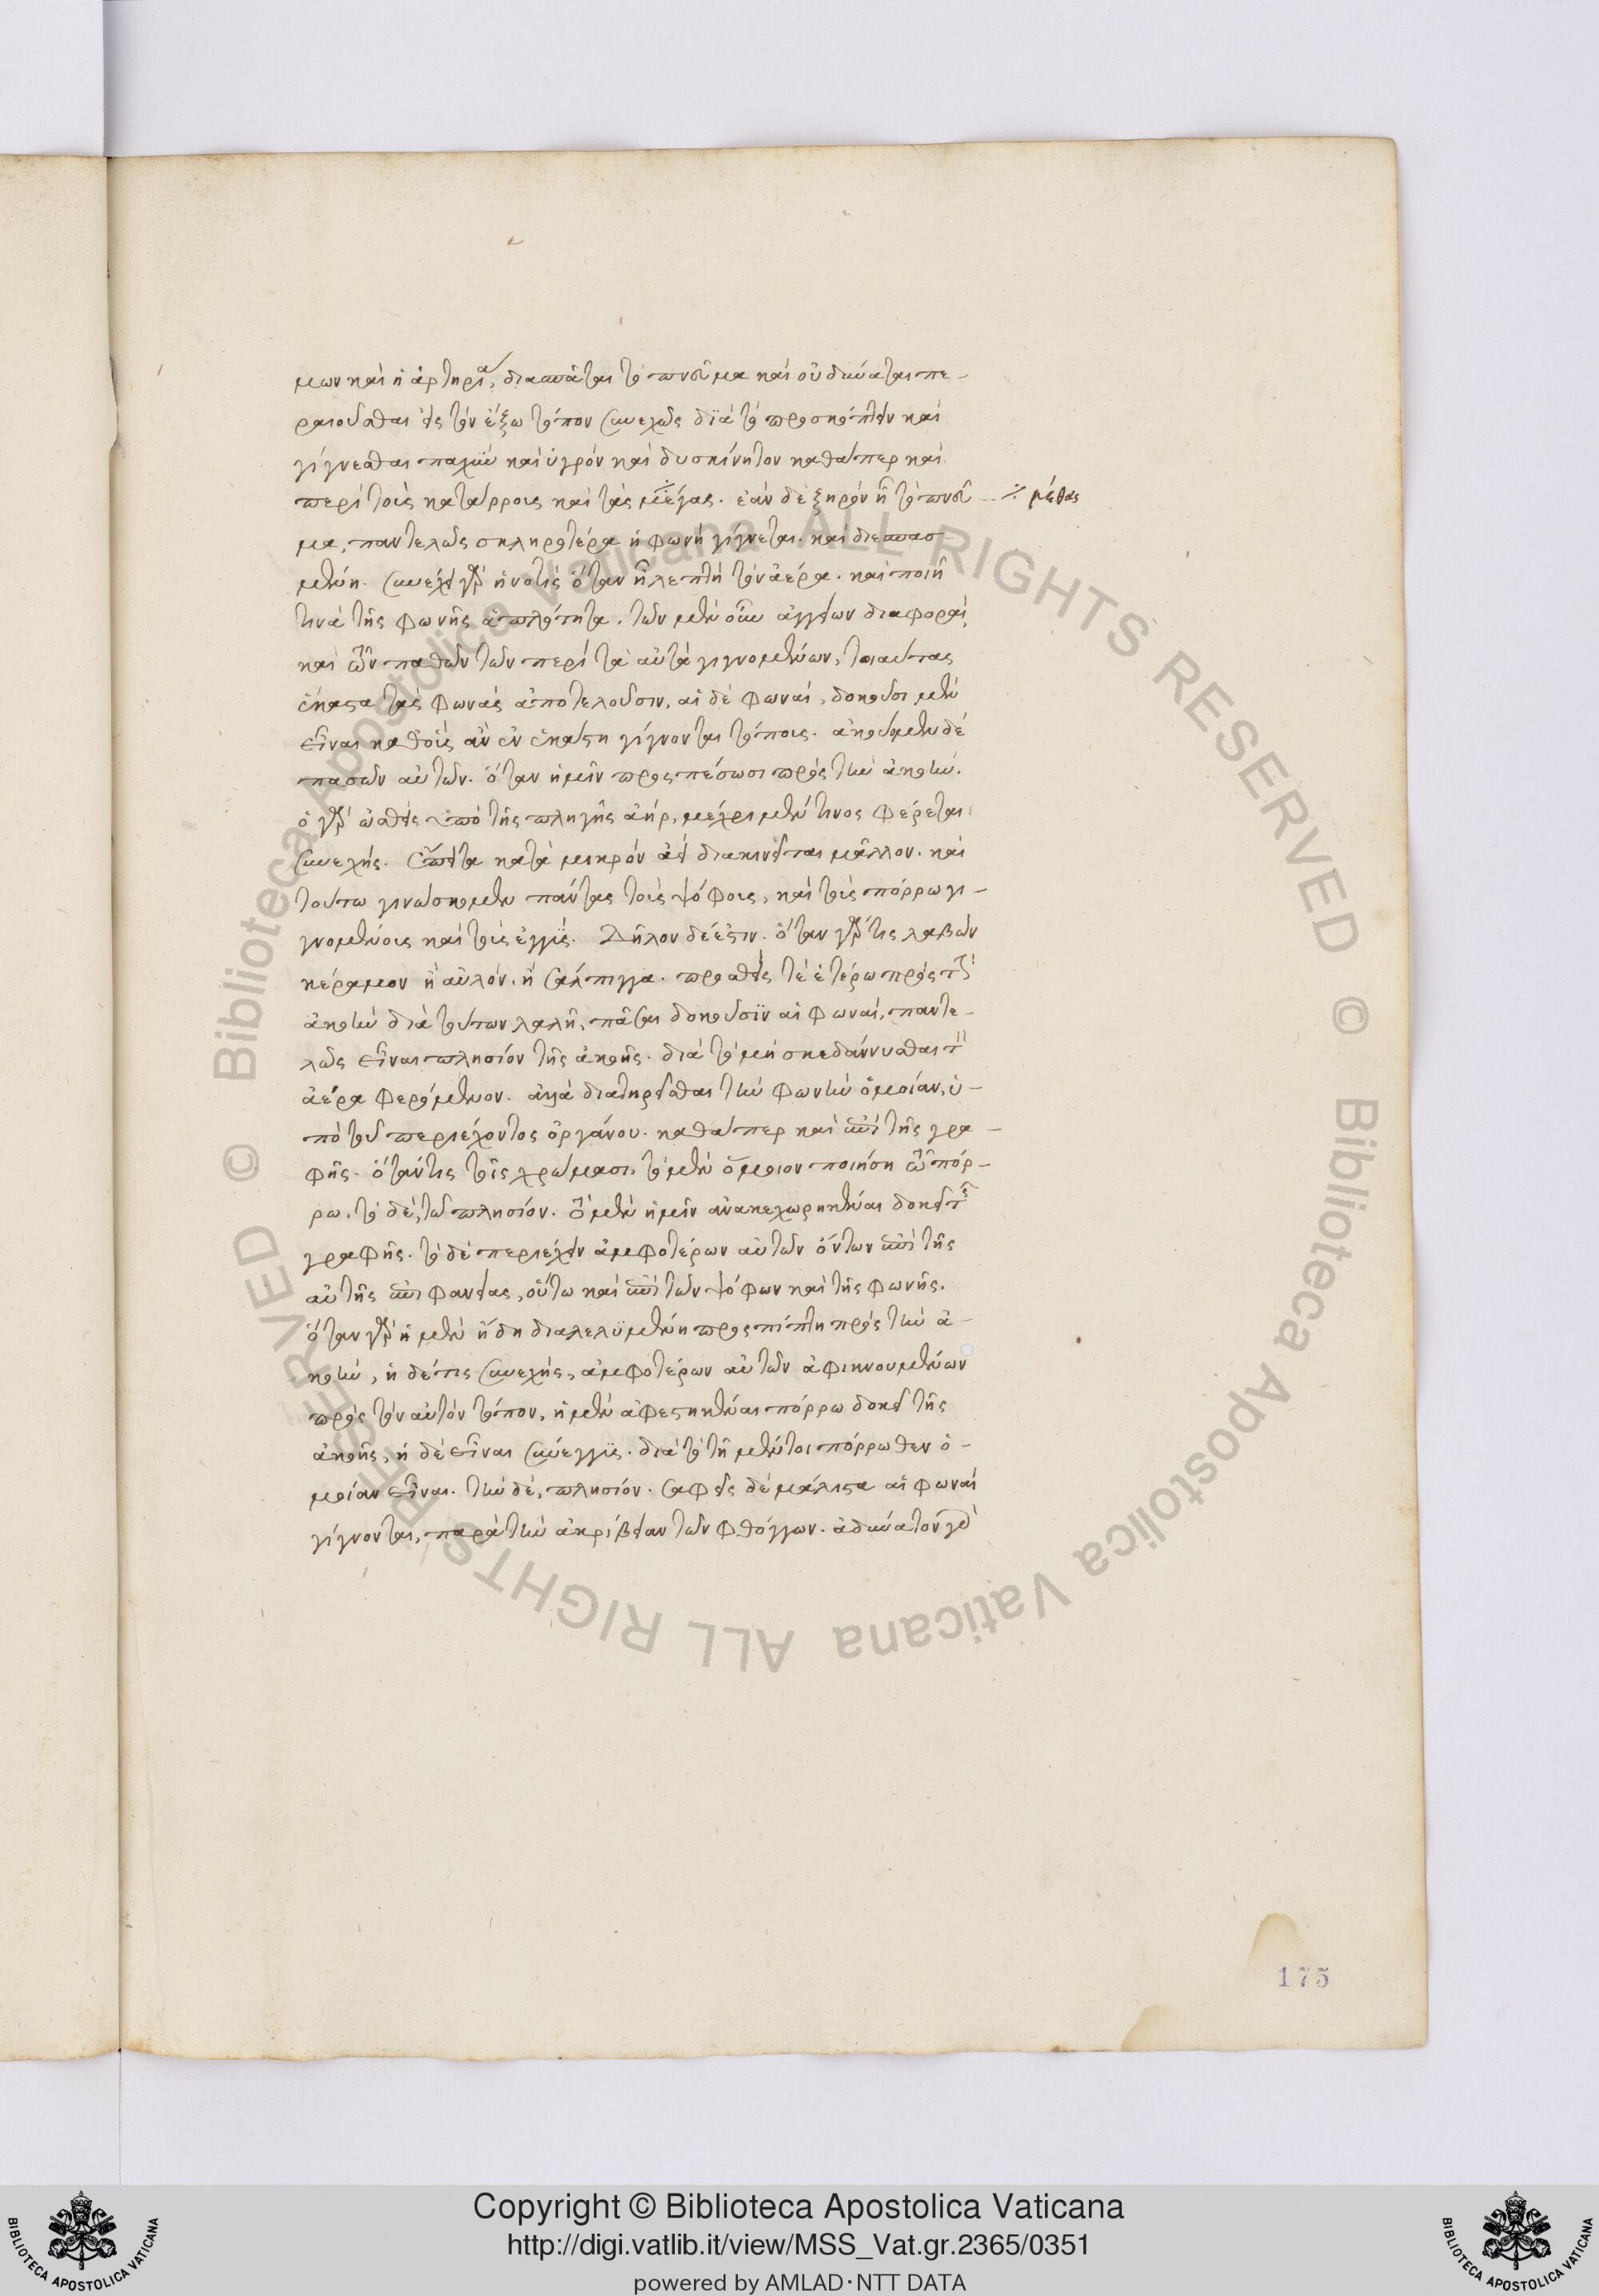 μων καὶ ἡ ἀρτηρία, διασπᾶται τὸ πνεῦμα καὶ οὐ δύναται πε-
ραιοῦσθαι εἰς τὸν ἔξω τόπον συνεχῶς διὰ τὸ προσκόπτειν καὶ
γίγνεσθαι παχὺ καὶ ὑγρὸν καὶ δυσκίνητον καθάπερ καὶ
περὶ τοὺς κατάρρους καὶ τὰς μεγας. ἐὰν δὲ ξηρὸν ᾖ τὸ πνεῦ
÷ μέθας
μα, παντελῶς σκληροτέρα ἡ φωνὴ γίγνεται. καὶ διεσπασ
μένη. συνέχει γὰρ ἡ νοτὶς ὅταν ᾖ λεπτὴ τὸν ἀέρα. καὶ ποιῇ
τινὰ τῆς φωνῆς ἁπλότητα. τῶν μὲν οὖν ἀγγείων διαφοραὶ,
καὶ τῶν παθῶν τῶν περὶ τὰ αὐτὰ γιγνομένων, τοιαύτας
ἕκαστα τὰς φωνὰς ἀποτελοῦσιν, αἱ δὲ φωναὶ, δοκοῦσι μὲν
εἶναι καθοὺς ἂν ἐν ἑκάστῃ γίγνονται τόπους. ἀκούομεν δὲ
πασῶν αὐτῶν. ὅταν ἡμῖν προσπέσωσι πρὸς τὴν ἀκοήν.
ὁ γὰρ ὠσθεὶς ὑπὸ τῆς πληγῆς ἀὴρ, μέχρι μέν τινος φέρεται
συνεχής. ἔπειτα κατὰ μικρὸν ἀεὶ διακινεῖται μᾶλλον. καὶ
τούτω γινώσκομεν πάντας τοὺς ψόφους, καὶ τοὺς πόρρω γι-
γνομένους καὶ τοὺς ἐγγύς. Δῆλον δέ ἐστιν. ὅταν γάρ τις λαβὼν
κέραμον ἢ αὐλόν. ἢ σάλπιγγα. προσθείς τε ἑτέρω πρὸς τὴν
ἀκοὴν διὰ τούτων λαλῇ, πᾶσαι δοκοῦσιν αἱ φωναὶ, παντε-
λῶς εἶναι πλησίον τῆς ἀκοῆς. διὰ τὸ μὴ σκεδάννυσθαι τὸν
ἀέρα φερόμενον. ἀλλὰ διατηρεῖσθαι τὴν φωνὴν ὁμοίαν, ὑ-
πὸ τοῦ περιέχοντος ὀργάνου. καθάπερ καὶ ἐπὶ τῆς γρα-
φῆς. ὅταν τις τοῖς χρώμασι, τὸ μὲν ὅμοιον ποιήσῃ τῷ πόρ-
ρω. τὸ δὲ, τῷ πλησίον. τὸ μὲν ἡμῖν ἀνακεχωρηκέναι δοκεῖ τῆς
γραφῆς. τὸ δὲ περιέχειν ἀμφοτέρων αὐτῶν ὄντων ἐπὶ τῆς
αὐτῆς ἐπιφανείας, οὕτω καὶ ἐπὶ τῶν ψόφων καὶ τῆς φωνῆς.
ὅταν γὰρ ἡ μὲν ἤδη διαλελυμένη προσπίπτῃ πρὸς τὴν ἀ-
κοὴν, ἡ δέ τις συνεχής, ἀμφοτέρων αὐτῶν ἀφικνουμένων
πρὸς τὸν αὐτὸν τόπον, ἡ μὲν ἀφεστηκέναι πόρρω δοκεῖ τῆς
ἀκοῆς, ἡ δὲ εἶναι σύνεγγυς. διὰ τὸ τῇ μέντοι πόρρωθεν ὁ-
μοίαν εἶναι. τὴν δὲ, πλησίον. σαφεῖς δὲ μάλιστα αἱ φωναὶ
γίγνονται, παρὰ τὴν ἀκρίβειαν τῶν φθόγγων. ἀδύνατον γὰρ
175
© Biblioteca Apostolica Vaticana ALL RIGHTS RESERVED © Biblioteca Apostolica Vaticana ALL RIGHTS RESERVED
Copyright © Biblioteca Apostolica Vaticana
http://digi.vatlib.it/view/MSS_Vat.gr.2365/0351
powered by AMLAD·NTT DATA
BIBLIOTECA APOSTOLICA VATICANA
BIBLIOTECA APOSTOLICA VATICANA